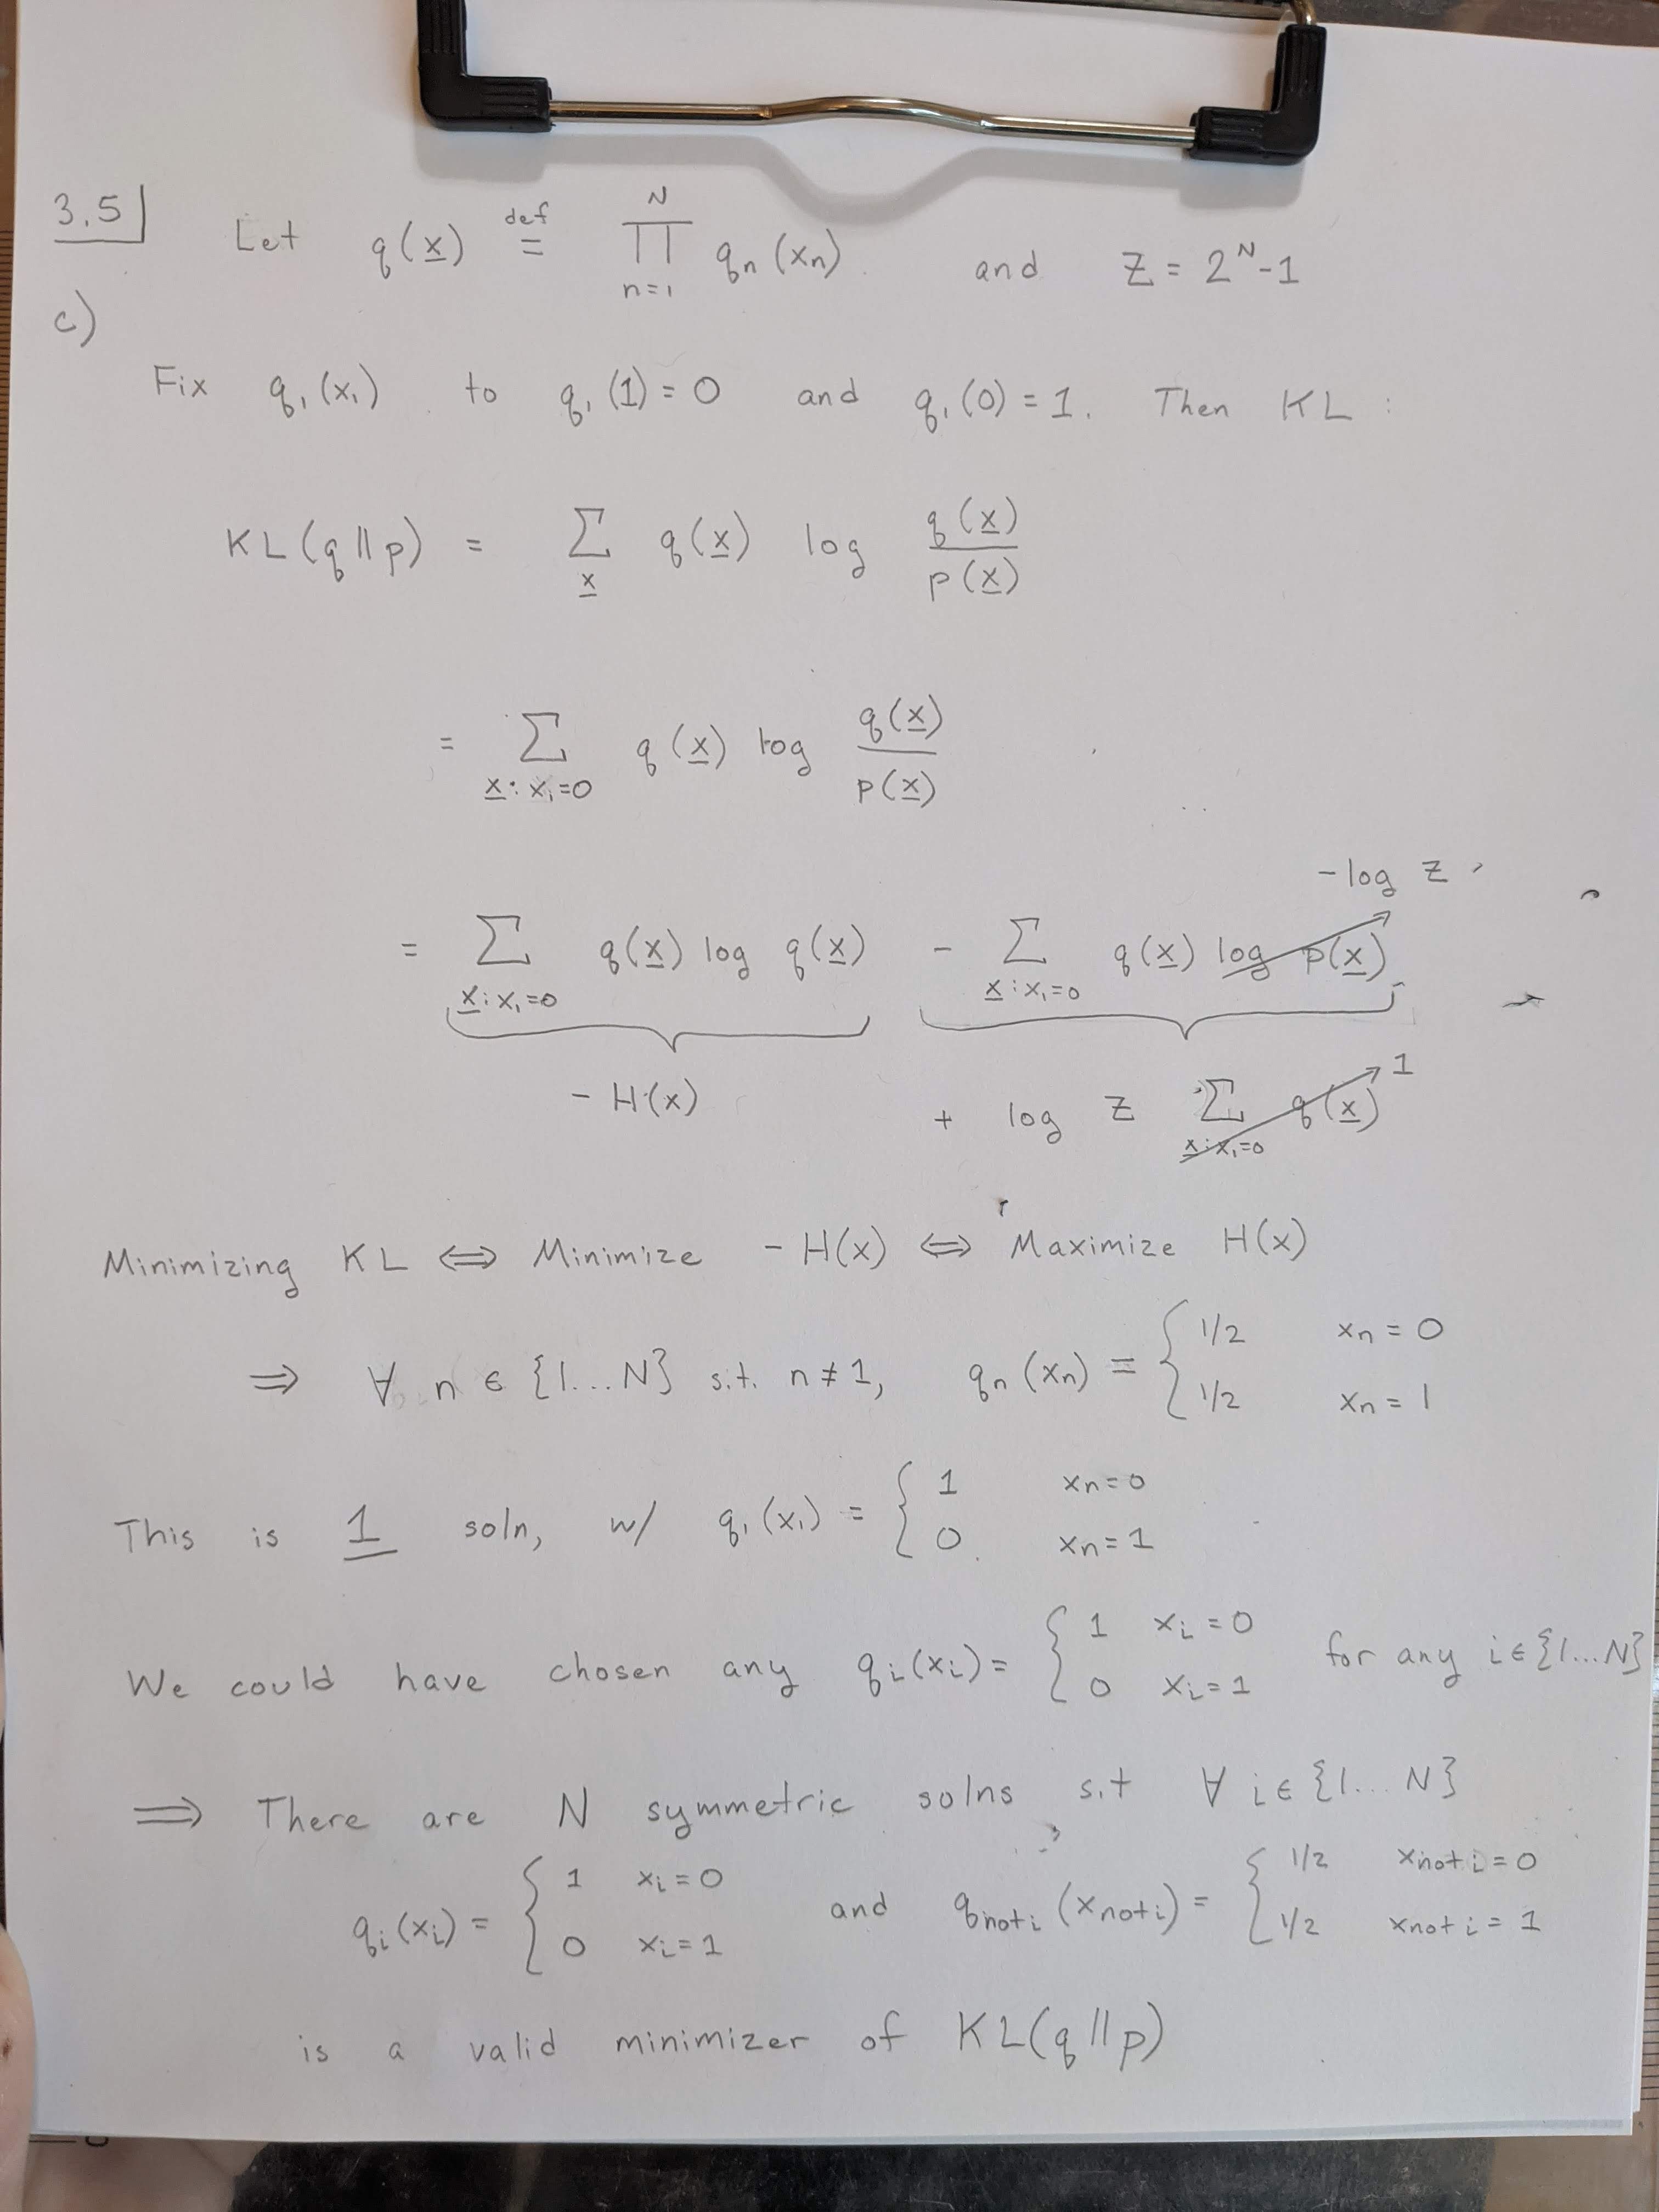 3.5 Let q(x) def= ∏_{n=1}^{N} q_n(x_n) and Z = 2^N - 1
c)
Fix q_1(x_1) to q_1(1) = 0 and q_1(0) = 1. Then KL :
KL(q || p) = Σ_x q(x) log q(x)/p(x)
= Σ_{x: x_1=0} q(x) log q(x)/p(x)
-log Z
= Σ_{x: x_1=0} q(x) log q(x) - Σ_{x: x_1=0} q(x) log p(x)
-H(x) + log Z Σ_{x: x_1=0} q(x) 1
Minimizing KL ⟺ Minimize -H(x) ⟺ Maximize H(x)
⟹ ∀ n ∈ {1...N} s.t. n ≠ 1, q_n(x_n) = { 1/2 x_n = 0
1/2 x_n = 1
This is 1 soln, w/ q_1(x_1) = { 1 x_n = 0
0 x_n = 1
We could have chosen any q_i(x_i) = { 1 x_i = 0 for any i ∈ {1...N}
0 x_i = 1
⟹ There are N symmetric solns s.t ∀ i ∈ {1... N}
q_i(x_i) = { 1 x_i = 0 and q_{not i}(x_{not i}) = { 1/2 x_{not i} = 0
0 x_i = 1 1/2 x_{not i} = 1
is a valid minimizer of KL(q || p)